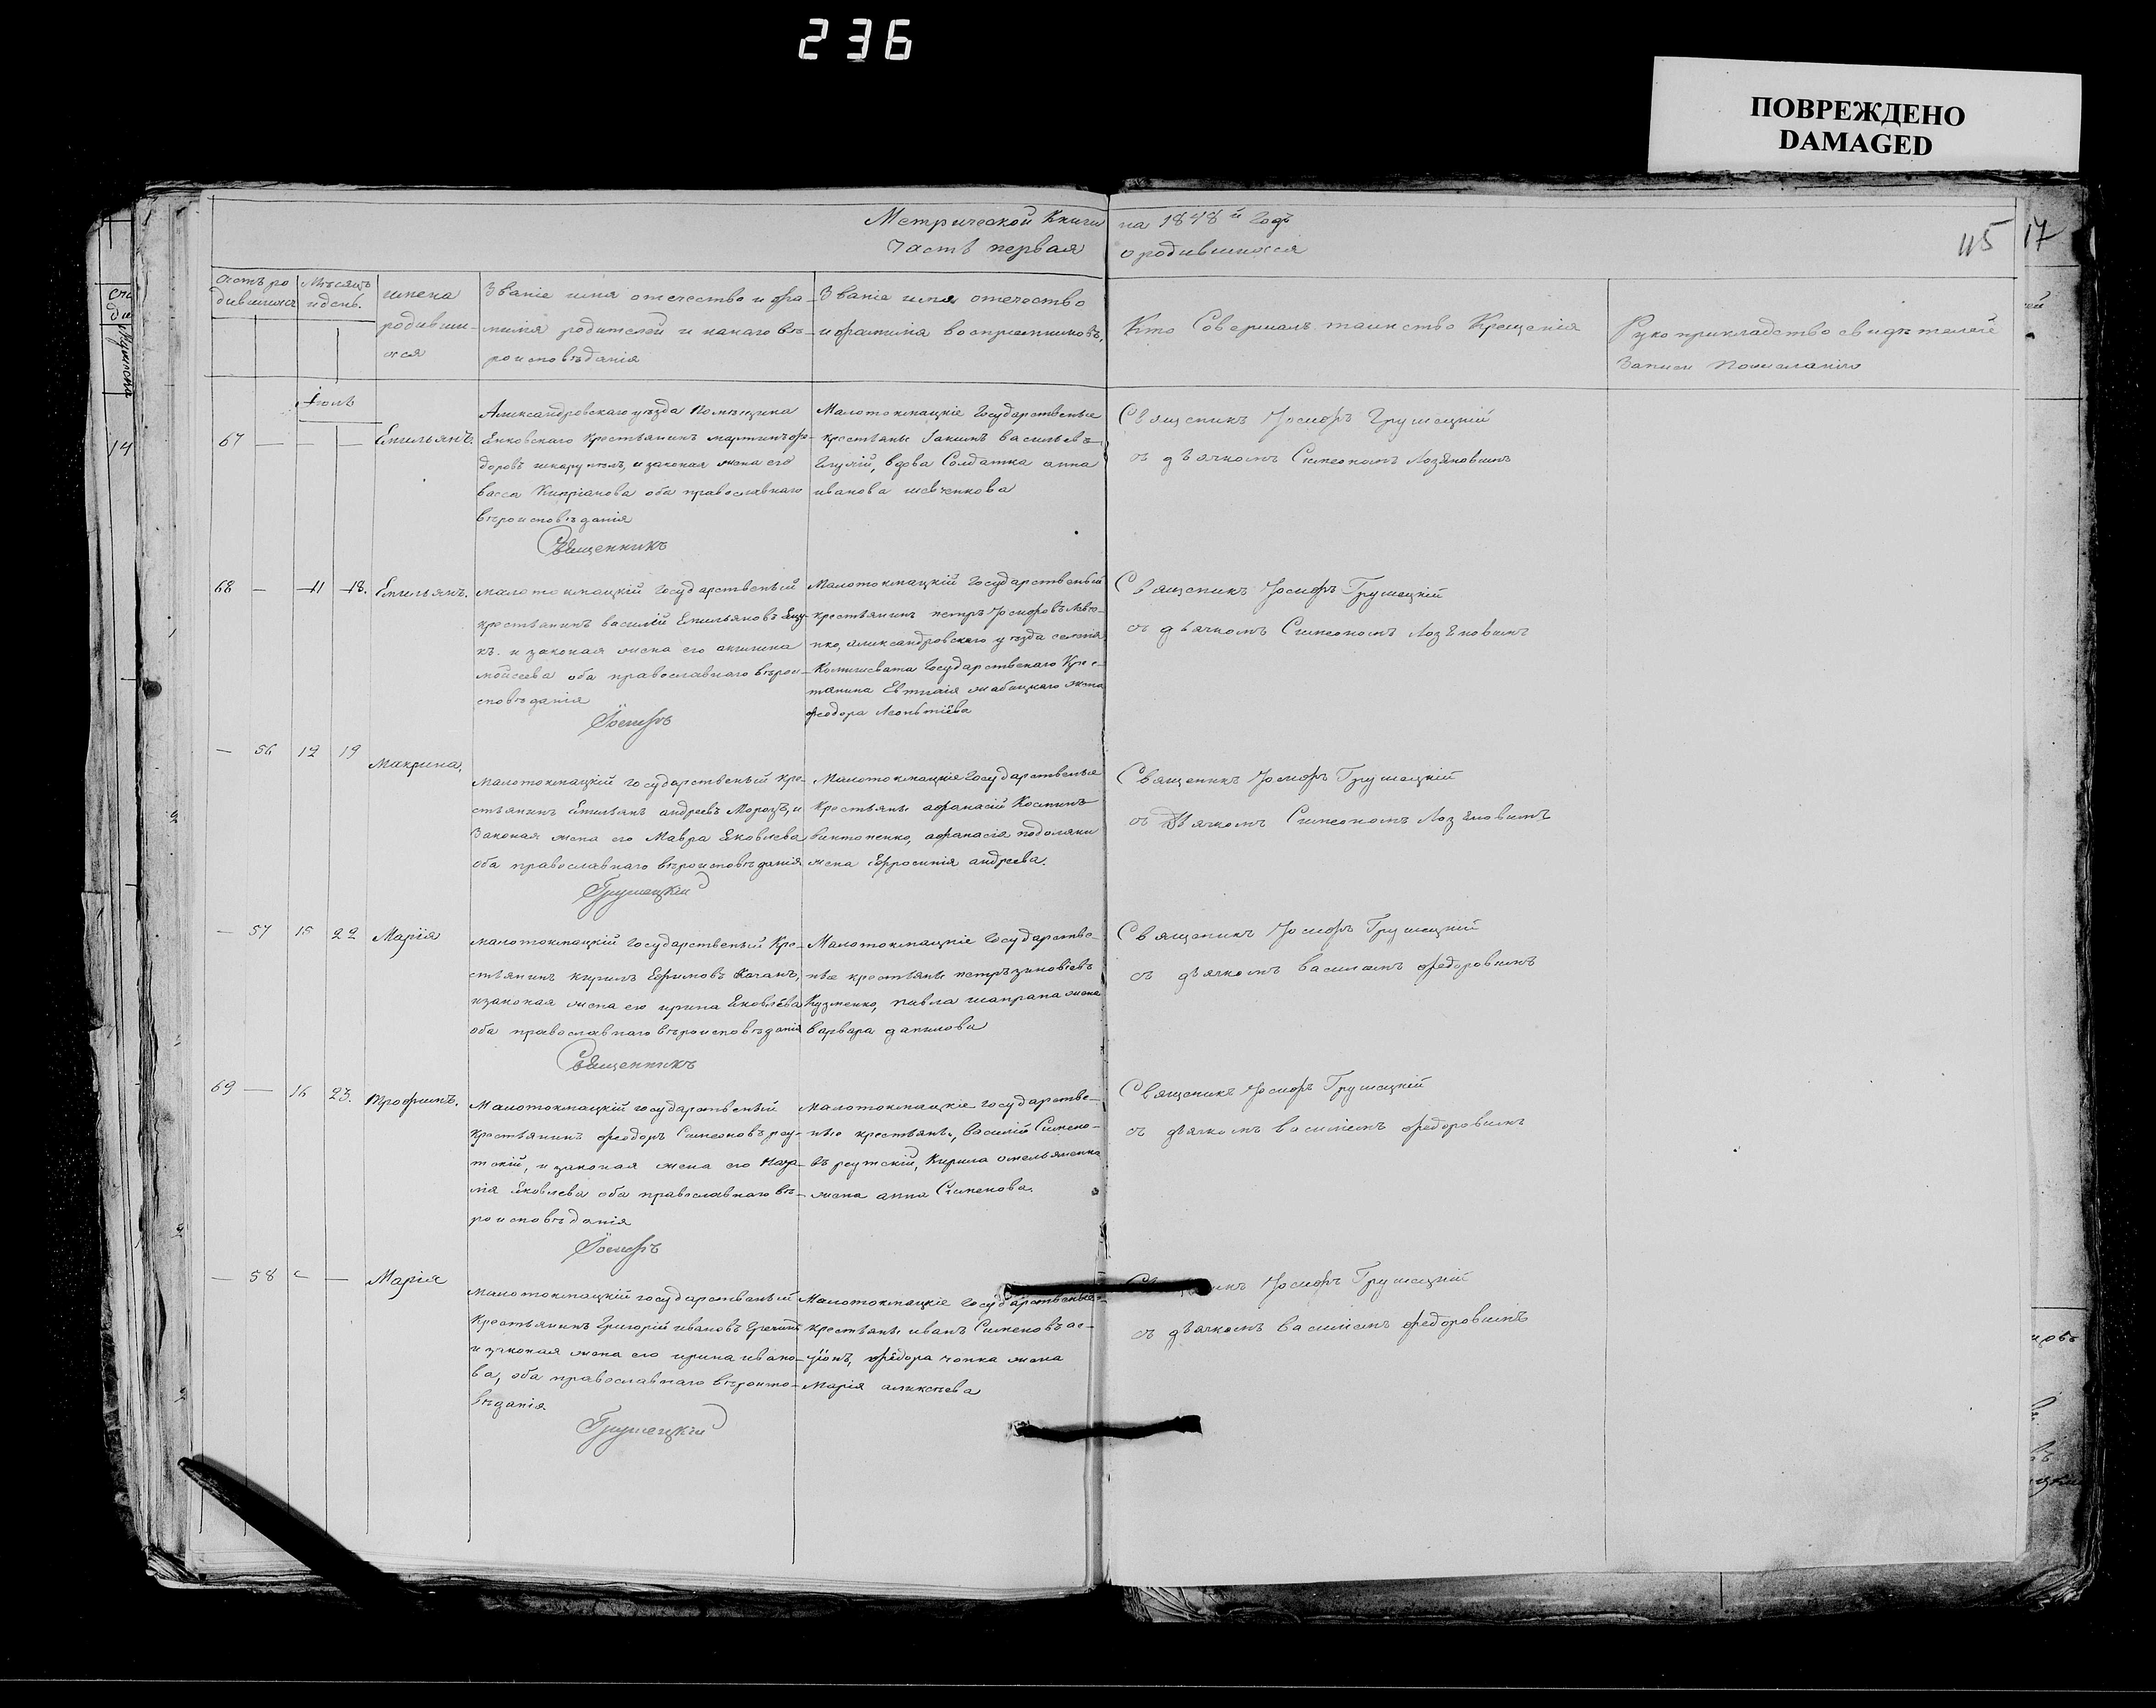 236
ПОВРЕЖДЕНО
DAMAGED
Метрической Книги на 1848 й Годъ
Часть первая о родившихся
115
17
Счетъ ро
дившихся
Мѣсяцъ
и день.
имена
родивши-
хся
Званіе имя отечество и фа-
милія родителей и какаго вѣ-
роисповѣданія
Званіе имя отечество
и фамилія воспріемниковъ.
Кто Совершалъ таинство Крещенія
Рукоприкладство свидѣтелей
Записи по желанію
Іюль
67 — — —
Емельянъ
Александровскаго уѣзда Помѣщика
крестьянинъ мартинъ фе-
доровъ и законая жена его
васса Кипріанова оба православнаго
вѣроисповѣданія
Малотокмацкіе Государственые
крестьяне Іакимъ васильевъ
вдова Солдатка анна
иванова шевченкова
Священикъ Іосифъ Грушецкій
съ дьячкомъ Симеономъ Лозяновымъ
Священникъ
68 — 11 18. Емельянъ.
малотокмацкій Государственый
крестьянинъ василій Емельяновъ Яцу-
къ. и законая жена его акилина
мойсеева оба православнаго вѣрои-
сповѣданія
Малотокмацкій Государственый
крестьянинъ петръ Іосифовъ Левче-
нко, александровскаго уѣзда селенія
Комишевата Государственаго Кре-
стянина Евтихія жабицкаго жена
феодора Леонтіева
Священикъ Іосифъ Грушецкій
съ дьячкомъ Симеономъ Лозяновымъ
Іосифъ
— 56 12 19
Макрина,
Малотокмацкій государственый кре-
стьянинъ Емельянъ андреевъ Морозъ, и
Законая жена его Мавра Яковлева
оба православнаго вѣроисповѣданія
Малотокмацкіе Государственые
Крестьяне афанасій Костинъ
винтоненко, афанасія подоляки
жена Ефросинія андреева.
Священикъ Іосифъ Грушецкій
съ Дьячкомъ Симеономъ Лозяновымъ
Грушецкій
— 57 15 22 Марія
малотокмацкій Государственый Кре-
стьянинъ кирилъ Ефимовъ Качанъ,
и законая жена его ирина Яковлева
оба православнаго вѣроисповѣданія
Малотокмацкіе Государстве-
ные крестьяне петръ зиновіевъ
Кузменко, павла шапрана жена
варвара данилова
Священикъ Іосифъ Грушецкій
съ дьячкомъ василіемъ федоровымъ
Священникъ
69 — 16 23. Трофимъ.
Малотокмацкій государственый
крестьянинъ феодоръ Симеоновъ реу-
тскій, и законая жена его
Яковлева оба православнаго вѣ-
роисповѣданія
малотокмацкіе государстве-
ные крестьяне, василій Симено-
въ реутскій, Кирила омельяненка
жена анна Сименова.
Священикъ Іосифъ Грушецкій
съ дьячкомъ василіемъ федоровымъ
Іосифъ
— 58 — Марія
малотокмацкій государственый
Крестьянинъ Григорій ивановъ
и законая жена его ирина ивано-
ва, оба православнаго вѣроиспо-
вѣданія
Малотокмацкіе Государственые
крестьяне иванъ Сименовъ
федора чопка жена
Марія аликсѣева
Іосифъ Грушецкій
съ дьячкомъ василіемъ федоровымъ
Грушецкій